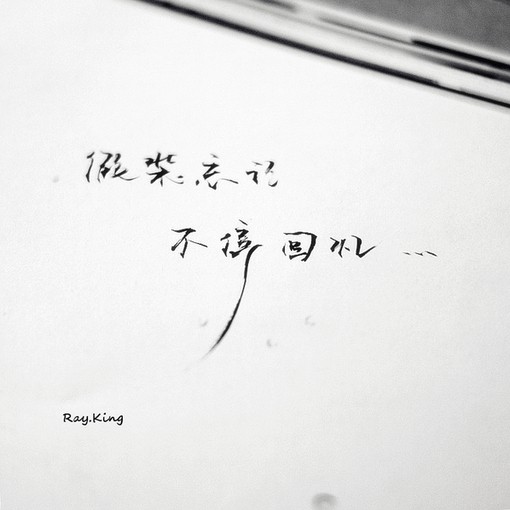 假装忘记
不停回忆...
Ray.King